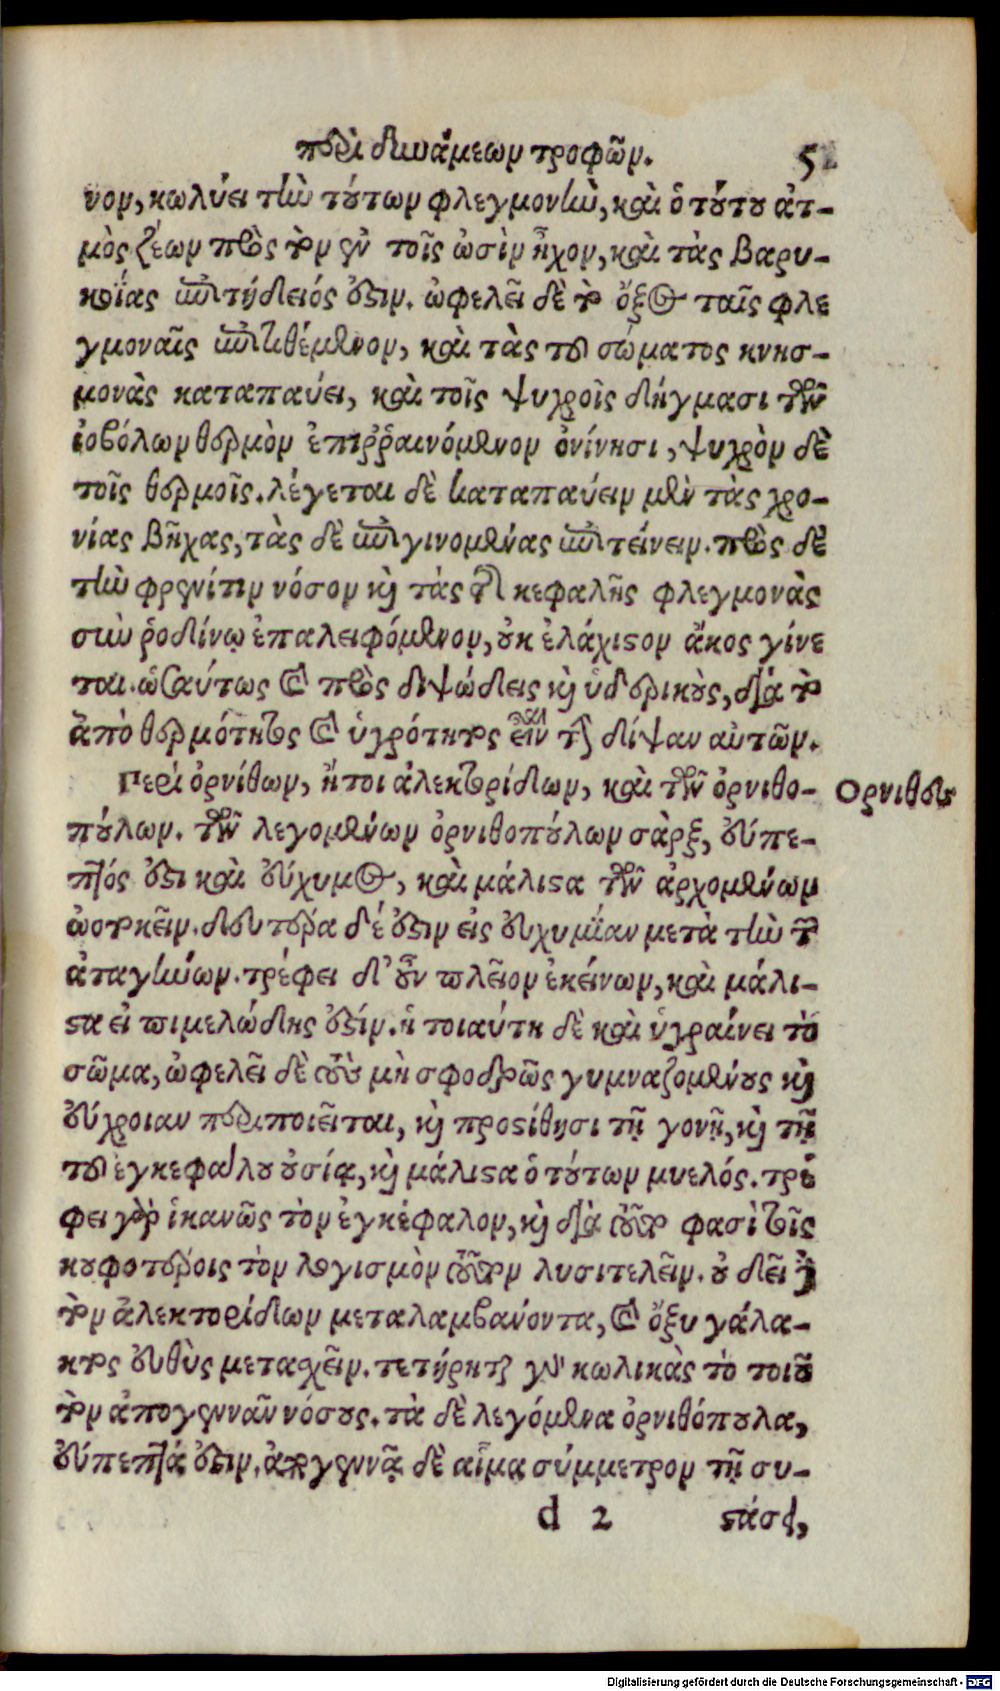 περὶ δυνάμεων τροφῶν. 51
νον, κωλύει τὴν τούτων φλεγμονὴν, καὶ ὁ τούτου ἀτ-
μὸς ζέων πρὸς τὸν ἐν τοῖς ὠσὶν ἦχον, καὶ τὰς βαρυ-
κοΐας ἐπιτήδειός ἐστιν. ὠφελεῖ δὲ τὸ ὄξος ταῖς φλε
γμοναῖς ἐπιτιθέμενον, καὶ τὰς τοῦ σώματος κνησ-
μονὰς καταπαύει, καὶ τοῖς ψυχροῖς δήγμασι τῶν
ἰοβόλων θερμὸν ἐπιῤῥαινόμενον ὀνίνησι, ψυχρὸν δὲ
τοῖς θερμοῖς. λέγεται δὲ καταπαύειν μὲν τὰς χρο-
νίας βῆχας, τὰς δὲ ἐπιγινομένας ἐπιτείνειν. πρὸς δὲ
τὴν φρενίτιν νόσον καὶ τὰς τῆς κεφαλῆς φλεγμονὰς
σὺν ῥοδίνῳ ἐπαλειφόμενον, οὐκ ἐλάχιστον ἄκος γίνε
ται. ὡσαύτως καὶ πρὸς διψώδεις καὶ ὑδερικοὺς, διὰ τὸ
ἀπὸ θερμότητος καὶ ὑγρότητος εἶναι τὴν δίψαν αὐτῶν.
Περὶ ὀρνίθων, ἤτοι ἀλεκτορίδων, καὶ τῶν ὀρνιθο-
Ορνιθες
πούλων. τῶν λεγομένων ὀρνιθοπούλων σὰρξ, εὔπε-
πτός ἐστι καὶ εὔχυμος, καὶ μάλιστα τῶν ἀρχομένων
ὠοτοκεῖν. δευτέρα δέ ἐστιν εἰς εὐχυμίαν μετὰ τὴν τῶν
ἀταγήνων. τρέφει δ' οὖν πλεῖον ἐκείνων, καὶ μάλι-
στα εἰ πιμελώδης ἐστίν. ἡ τοιαύτη δὲ καὶ ὑγραίνει τὸ
σῶμα, ὠφελεῖ δὲ τοὺς μὴ σφοδρῶς γυμναζομένους καὶ
εὔχροιαν περιποιεῖται, καὶ προστίθησι τῇ γονῇ, καὶ τῇ
τοῦ ἐγκεφάλου οὐσίᾳ, καὶ μάλιστα ὁ τούτων μυελός. τρέ
φει γὰρ ἱκανῶς τὸν ἐγκέφαλον, καὶ διὰ τοῦτο φασὶ τοῖς
κουφοτέροις τὸν λογισμὸν τοῦτον λυσιτελεῖν. οὐ δεῖ δὲ
τὸν ἀλεκτορίδων μεταλαμβανόντα, καὶ ὄξυ γάλα-
κτος εὐθὺς μετασχεῖν. τετήρηται γὰρ κωλικὰς τὸ τοιοῦ
τον ἀπογεννᾶν νόσους. τὰ δὲ λεγόμενα ὀρνιθόπουλα,
εὔπεπτά ἐστιν. ἀπογεννᾷ δὲ αἷμα σύμμετρον τῇ συ-
d 2 στάσει,
Digitalisierung gefördert durch die Deutsche Forschungsgemeinschaft - DFG